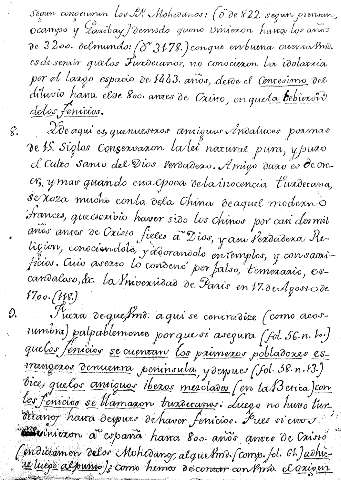 segun conocieron los PP. Mohedanos: (ó de 822. segun pretenden
Ocampo y Garibay) de modo que no vinieron hasta los años
de 3200. del mundo: (ó 3178.) con que en buena cuenta
es de sentir que los Turdetanos, no conocieron la idolatria
por el largo espacio de 1443. años, desde el Centesimo del
diluvio hasta el de 800. antes de Cristo, en que la bebieron
de los fenicios.
8. De aqui es, que nuestros antiguos Andaluces por mas
de 15. Siglos conservaron la lei natural pura, y puro
el Culto Santo del Dios verdadero. Amigo duro es de creer
er, y mas quando esa epoca de la inocencia turdetana,
se roza mucho con la dela China de aquel moderno
frances, que escribio haver sido los Chinos por casi dos mil
años antes de Cristo fieles a Dios, y a su verdadera Re-
ligion, conociendola, y adorandolo en templos, y con sacri-
ficios. Cuio aserto lo condenó por falso, temerario, es-
candaloso, &c. la Universidad de Paris en 17. de Agosto de
1700.
9. Fuera de que Pmd. aqui se contradice (como acos-
tumbra) palpablemente porque si asegura (fol. 56. n. 10.)
que los fenicios se cuentan los primeros pobladores es-
trangeros de nuestra peninsula, y despues (fol. 58. n. 13.)
dice, que los antiguos iberos mezclados (en la Betica) con
los fenicios se llamaron turdetanos: Luego no huvo tur-
detanos hasta despues de haver fenicios. Pues si estos
vinieron a españa hasta 800. años antes de Cristo
(en dictamen de los Mohedanos, al que Pmd. (comp. fol. 61.) adhie-
re luego al punto); como hemos de contar con Pmd. el origen